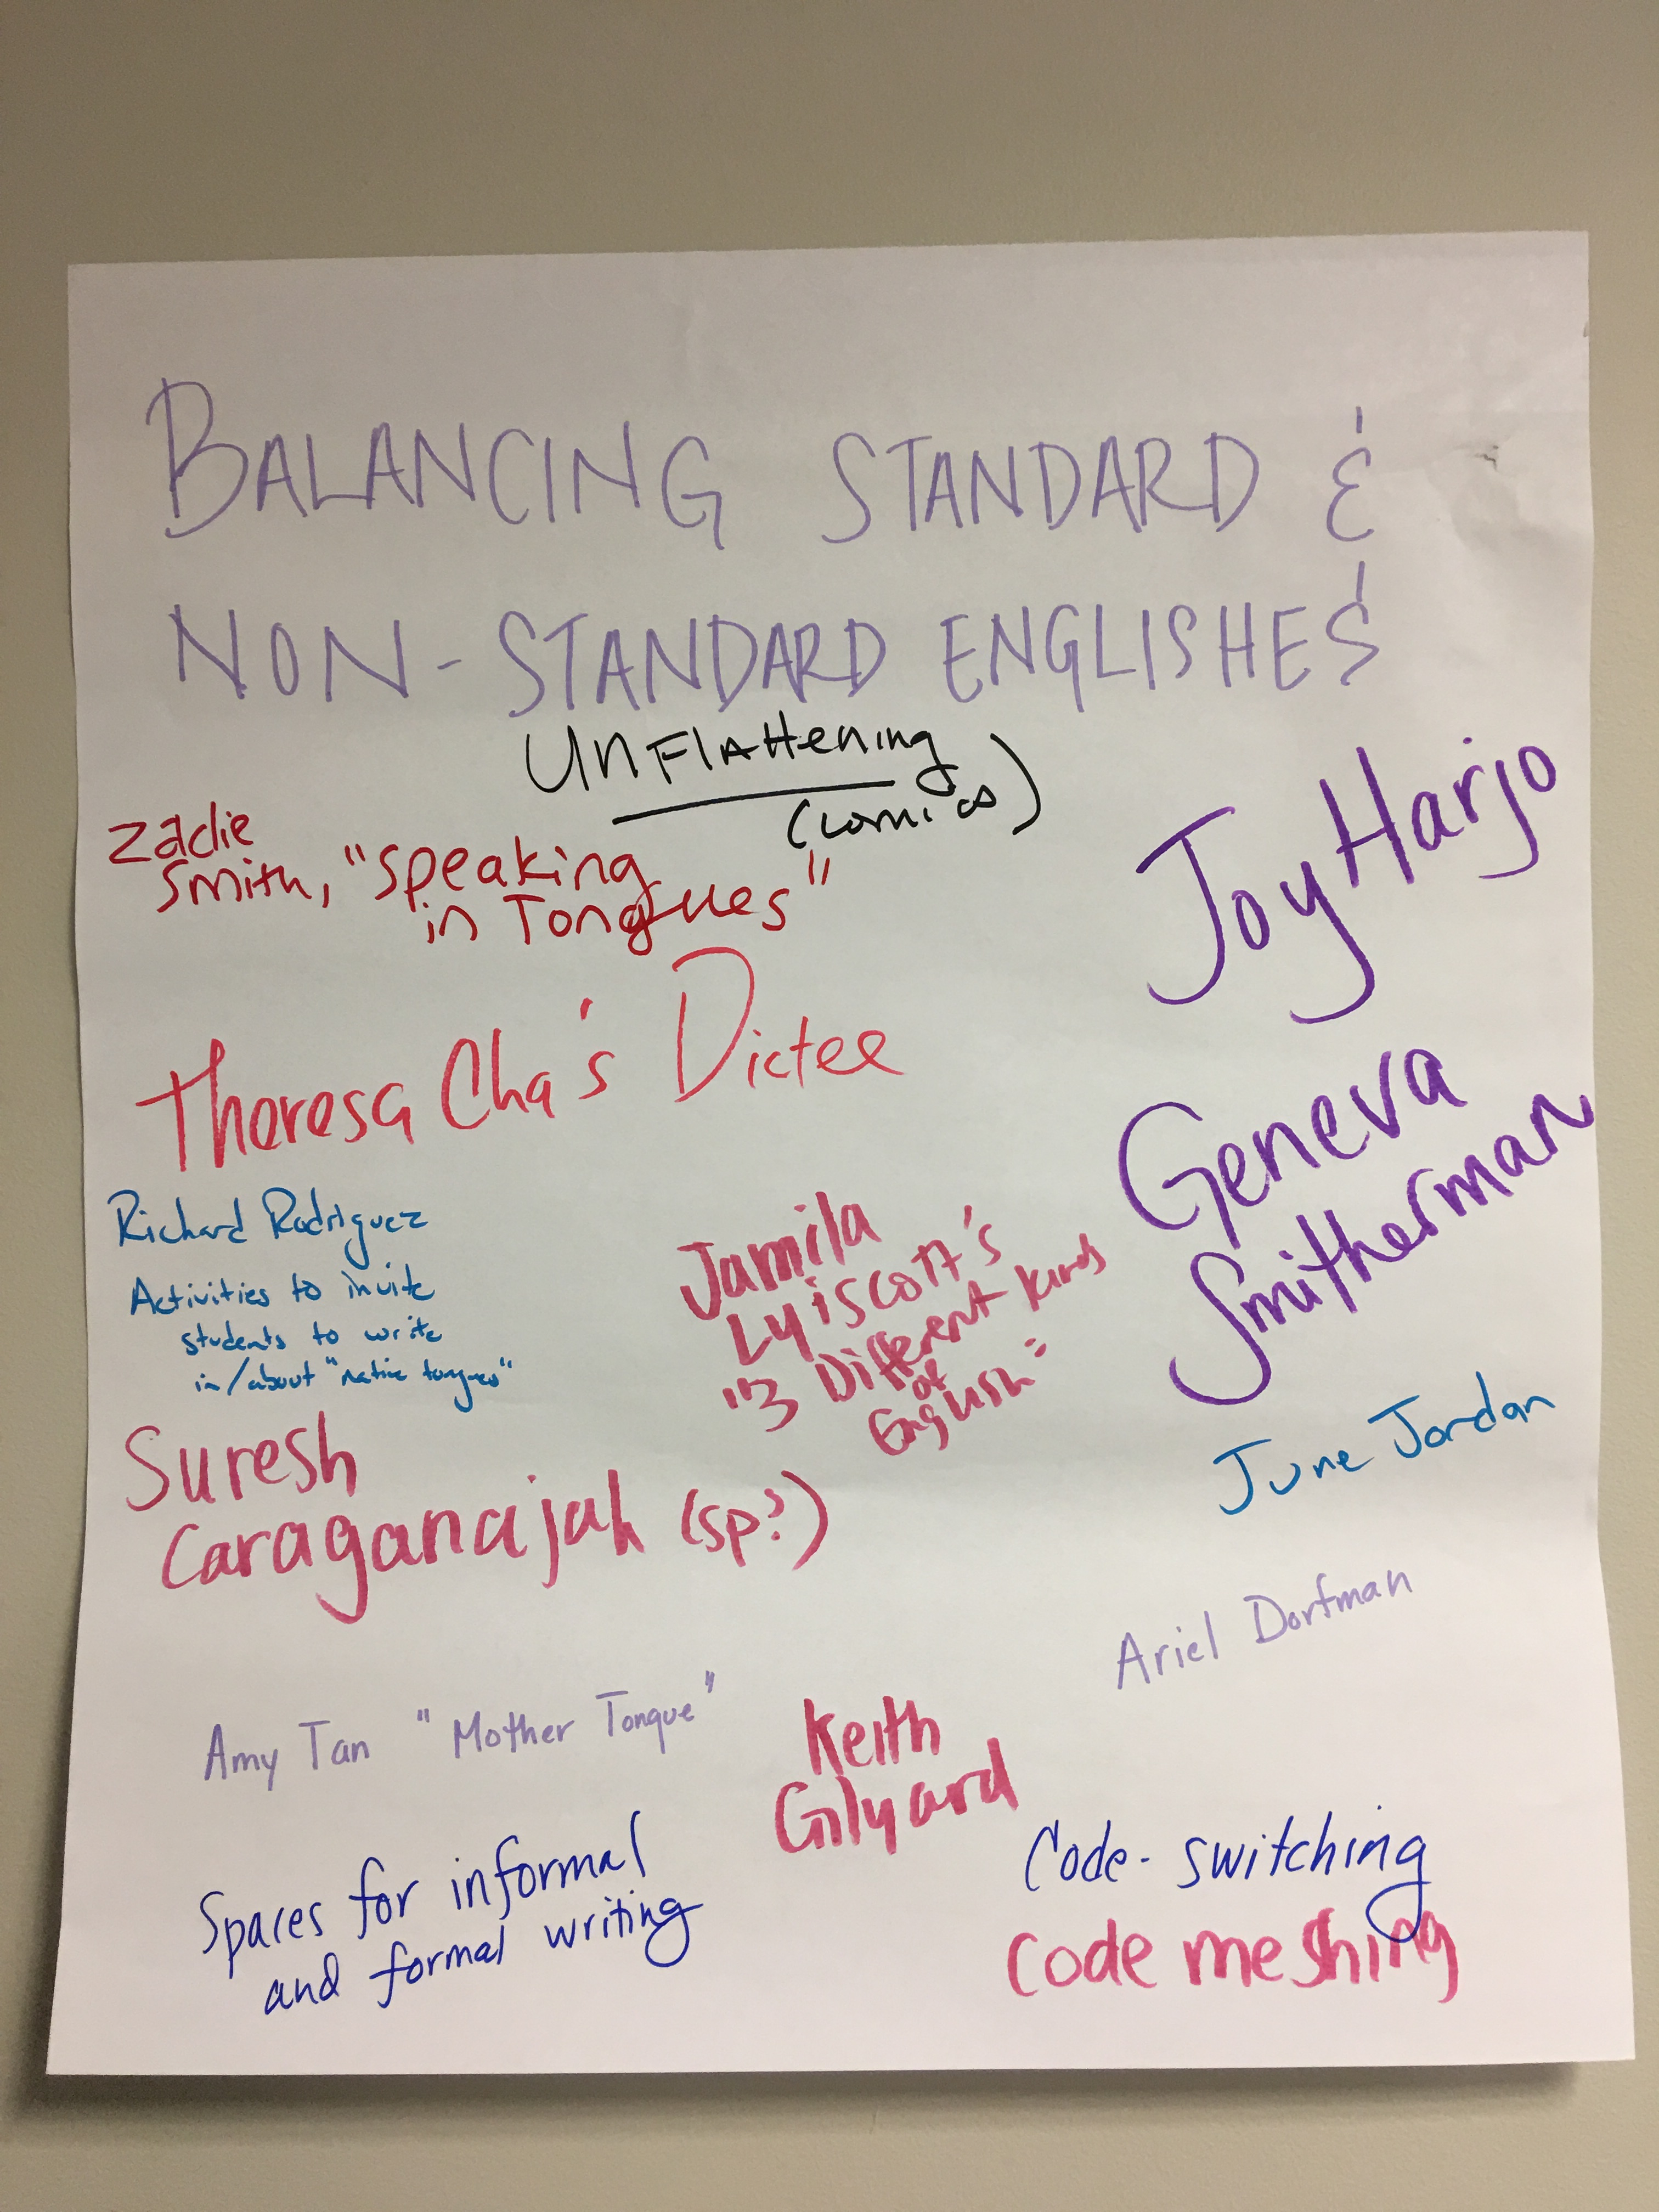 BALANCING STANDARD &
NON-STANDARD ENGLISHES
UNFLAttening
(comics)
Zadie
Smith, "Speaking
in Tongues"
Joy Harjo
Theresa Cha's Dictee
Geneva
Smitherman
Richard Rodriguez
Activities to invite
students to write
in/about "native tongues"
Jamila
Lyiscott's
"3 Different kinds
of
English"
June Jordan
Suresh
Caraganajah (sp?)
Ariel Dorfman
Amy Tan "Mother Tongue"
Keith
Gilyard
Spaces for informal
and formal writing
Code-switching
Code meshing